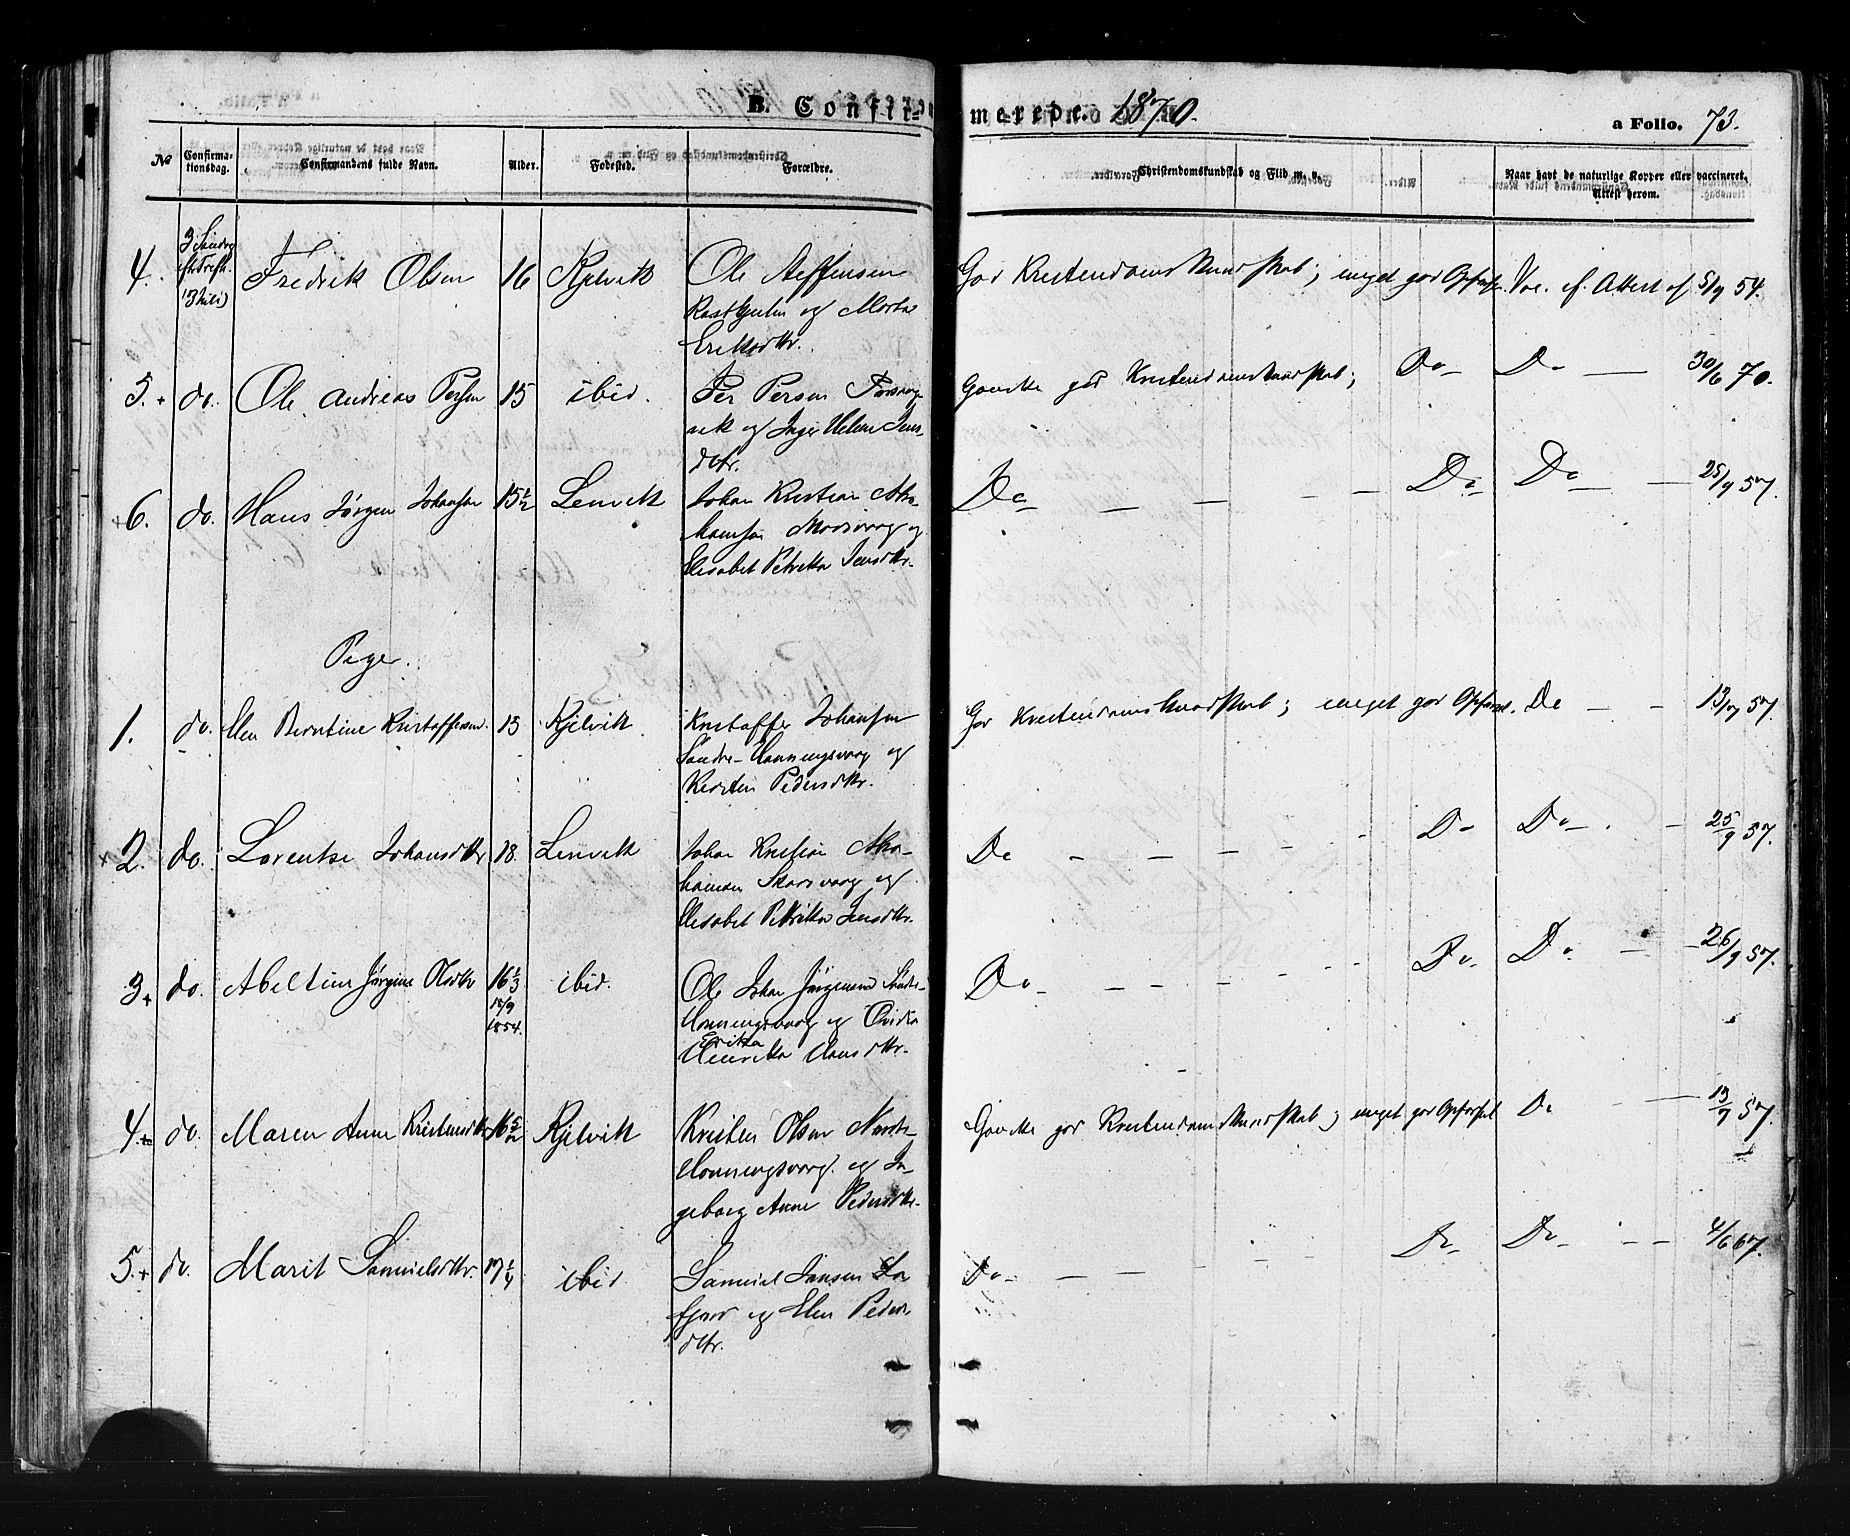 B. Confir-
merede. 1870.
a Folio. 73.
No
Confirma-
tionsdag.
Confirmandens fulde Navn.
Alder.
Fødested.
Forældre.
Christendomskundskab og Flid m. v.
Naar havt de naturlige Kopper eller vaccineret.
Attest herom.
4. Fredrik Olsen 16 Kjelvik Ole Steffensen
og Marta
Eriksdtr.
God Kristendomskundskab; meget god Opførsel. Vac. ef. Attest af 5/9 54.
5. + do. Ole Andreas Persen 15 ibid. Per Persen
vik og Inger Helene Jens-
dtr.
Ganske god Kristendomskundskab; Do- Do — 30/6 70.
+ 6. do. Hans Jørgen Johansen 15 1/2 Lenvik Johan Kristian Abra-
hamsen og
Elisabet Petrikka Jensdtr.
Do — — — — — Do- Do — — 25/9 57.
Piger.
1. do. Elen Berntine Kristoffersen 15 Kjelvik Kristoffer Johansen
Søndre-Honningsvaag og
Kirsten Pedersdtr.
God Kristendomskundskab; meget god Opførsel. Do — — 13/7 57.
+ 2. do. Lorentse Johansdtr 18. Lenvik Johan Kristian Abra-
hamsen Skarsvaag og
Elisabet Petrikka Jensdtr.
Do — — — — — Do Do — 25/9 57.
3 + do. Abeltine Jørgine Olsdtr 16 1/3 ibid. Ole Johan Jørgensen Søndre-
15/9
1854.
Honningsvaag og
Erikka
Henrikka Hansdtr.
Do — — — — Do. Do. — — 26/9 57.
4. + do. Maren Anne Kristensdtr 16 Kjelvik Kristen Olsen Nordre-
Honningsvaag og In-
geborg Anne Pedersdtr.
Ganske god Kristendomskundskab; meget god Opførsel Do — — 13/7 57.
5. + do. Marit Samuelsdtr. 17 1/4 ibid Samuel Jansen
fjord og Elen Peders-
dtr.
Do- — — — — — Do- Do- — — 4/6 67.